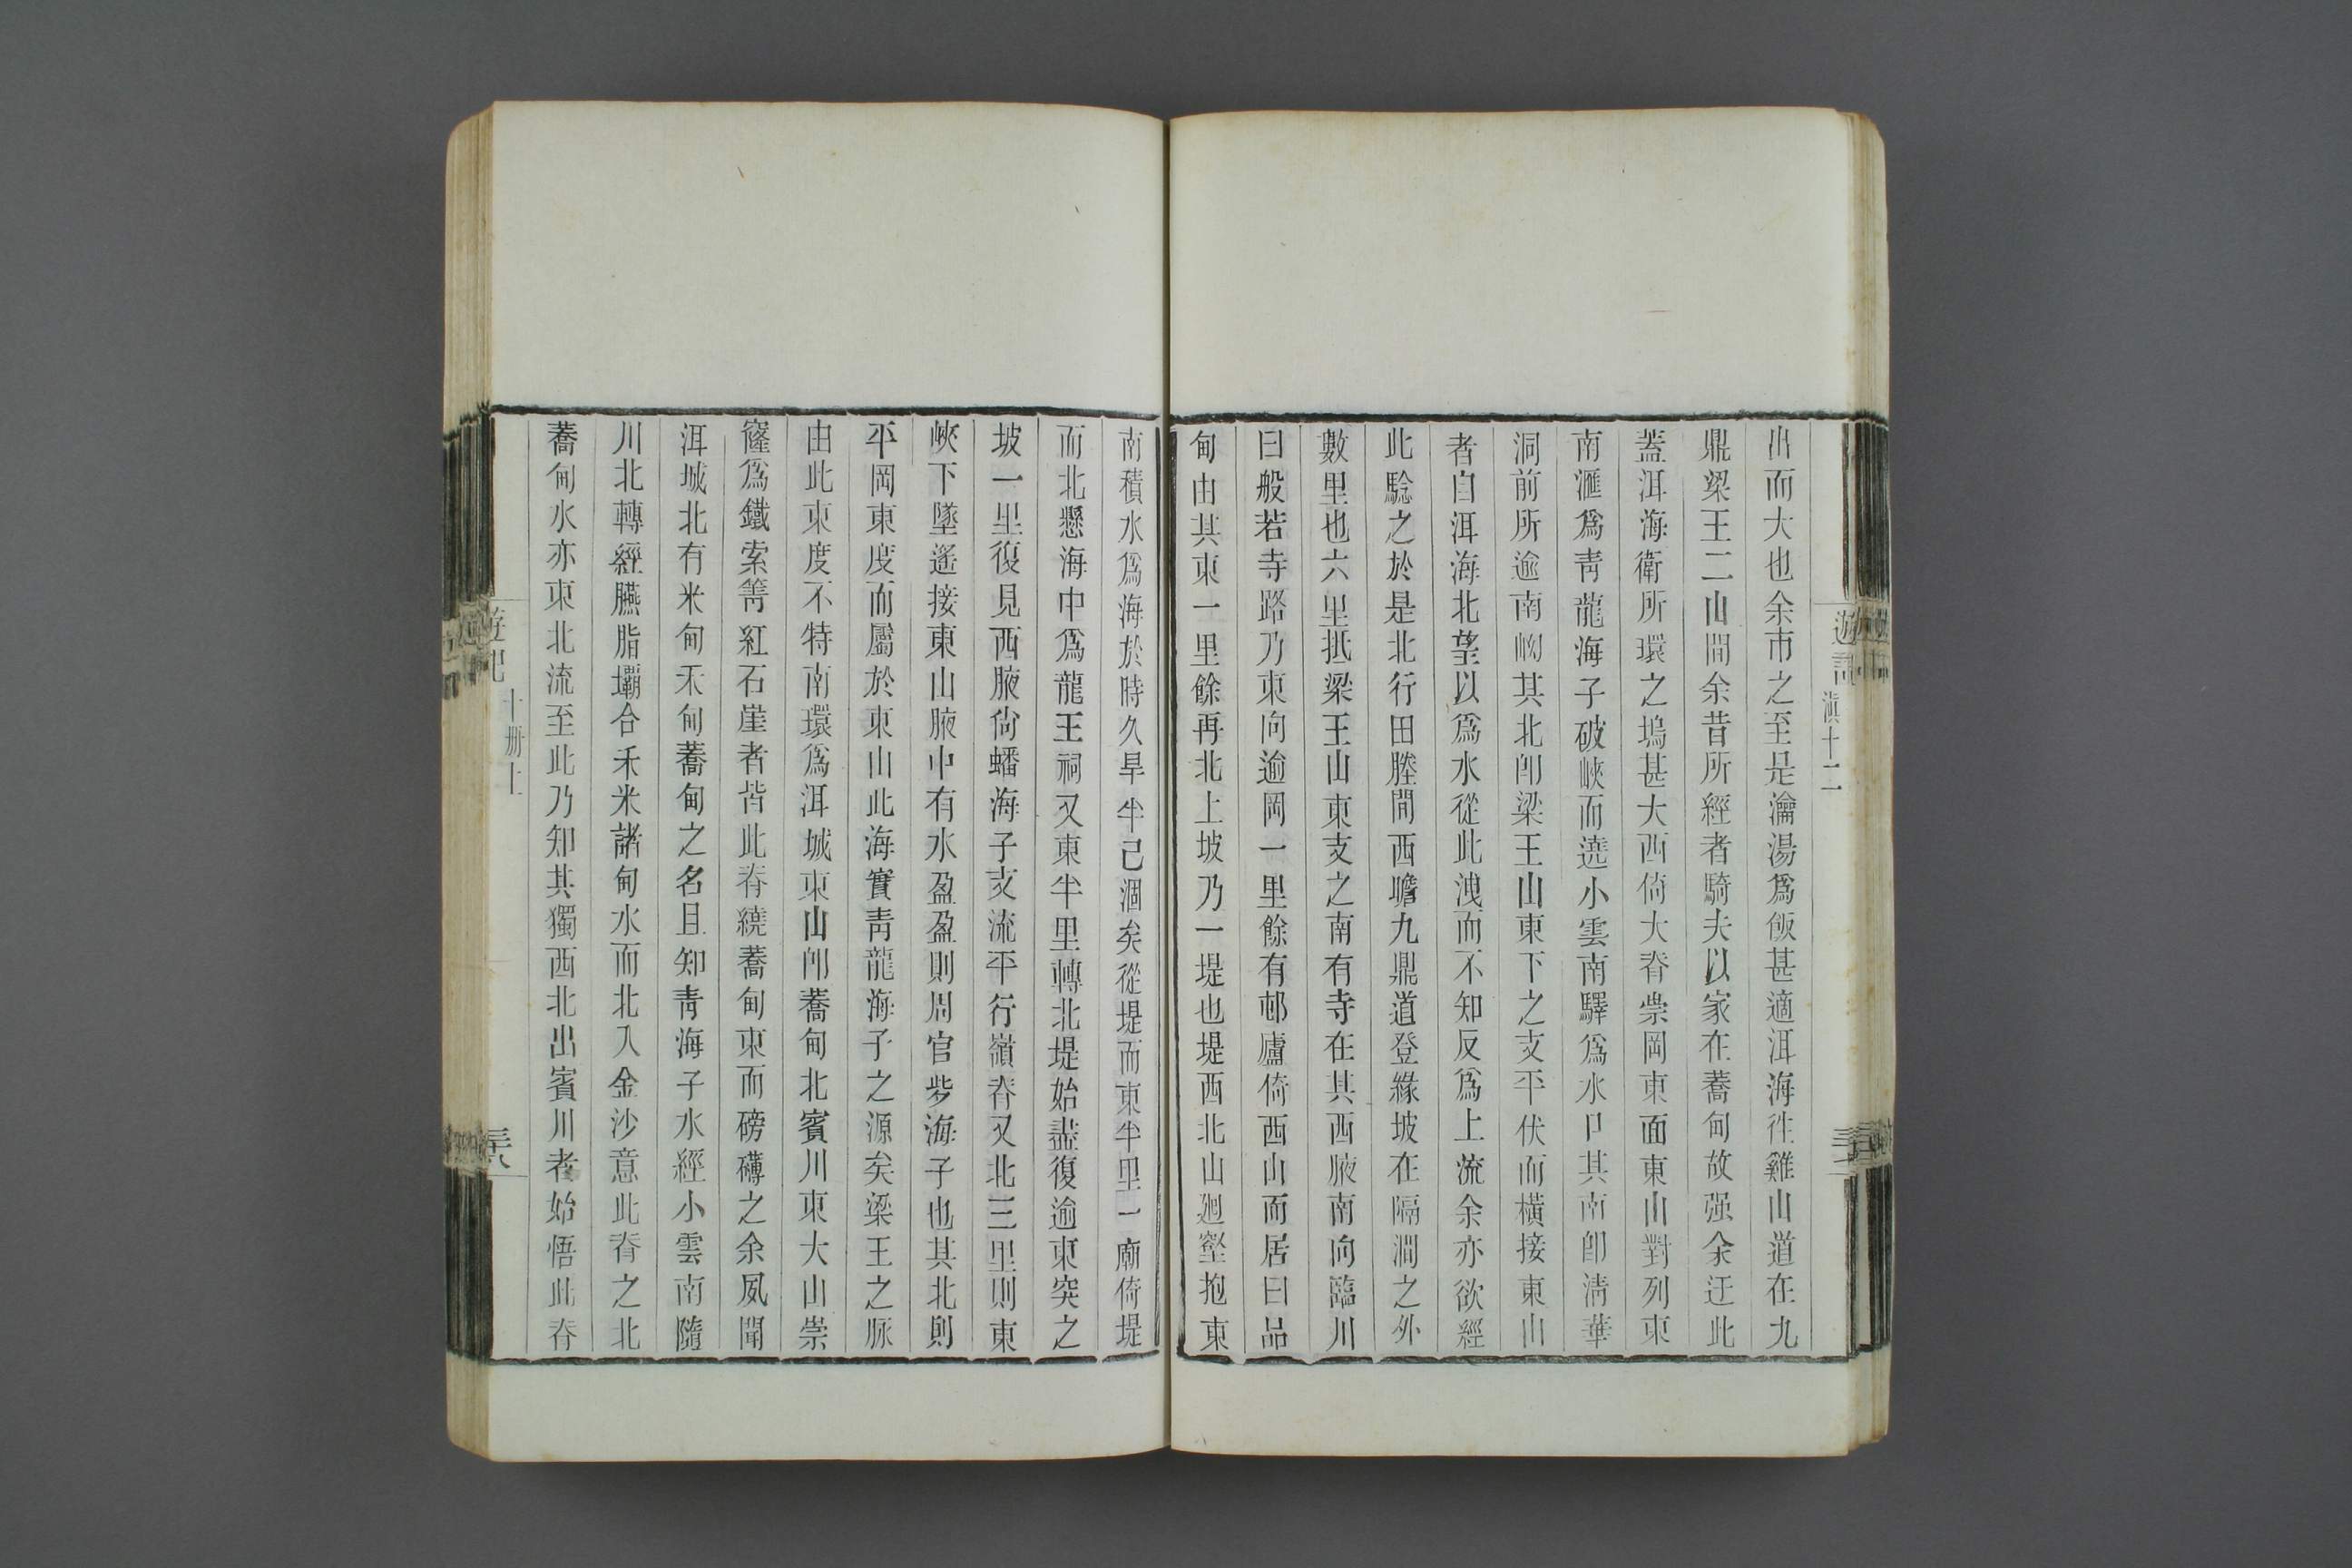 遊記
滇十二
出而大也余市之至是瀹湯爲飯甚適洱海往雞山道在九
鼎梁王二山間余昔所經者騎夫以家在蕎甸故强余迂此
蓋洱海衛所環之塢甚大西倚大脊崇岡東面東山對列東
南滙爲靑龍海子破峽而遶小雲南驛爲水口其南卽淸華
洞前所逾南坳其北卽梁王山東下之支平伏而橫接東山
者自洱海北望以爲水從此洩而不知反爲上流余亦欲經
此騐之於是北行田塍間西瞻九鼎道登緣坡在隔澗之外
數里也六里抵梁王山東支之南有寺在其西腋南向臨川
曰般若寺路乃東向逾岡一里餘有邨廬倚西山而居曰品
甸由其東一里餘再北上坡乃一堤也堤西北山廻壑抱東
南積水爲海於時久旱半已涸矣從堤而東半里一廟倚堤
而北懸海中爲龍王祠又東半里轉北堤始盡復逾東突之
坡一里復見西腋尙蟠海子支流平行嶺脊又北三里則東
峽下墜遙接東山腋中有水盈盈則周官㱔海子也其北則
平岡東度而屬於東山此海實靑龍海子之源矣梁王之脈
由此東度不特南環爲洱城東山卽蕎甸北賓川東大山崇
窿爲鐵索箐紅石崖者皆此脊繞蕎甸東而磅礡之余夙聞
洱城北有米甸禾甸蕎甸之名且知靑海子水經小雲南隨
川北轉經臙脂壩合禾米諸甸水而北入金沙意此脊之北
蕎甸水亦東北流至此乃知其獨西北出賓川者始悟此脊
遊記
十册上